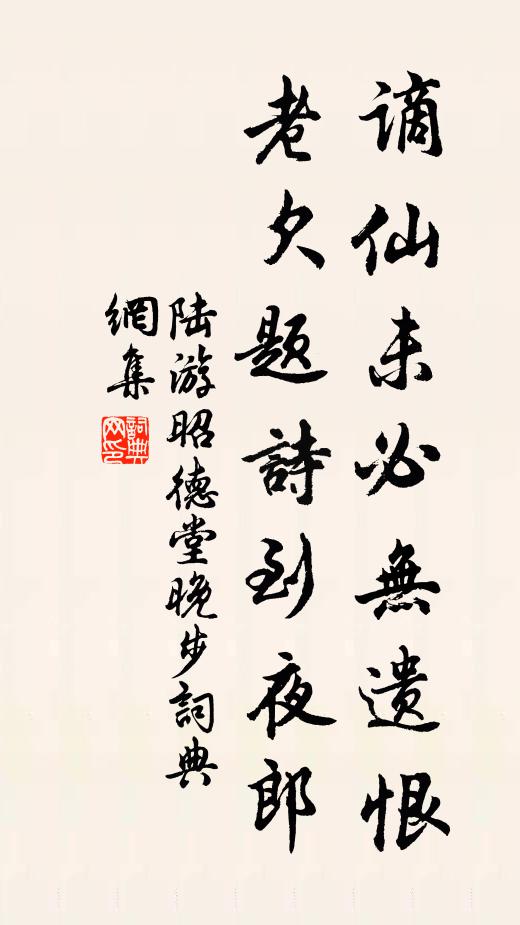 谪仙未必無遗恨
老欠题詩到夜郎
陆游昭德堂晚步詞典
網集
詞典
网印